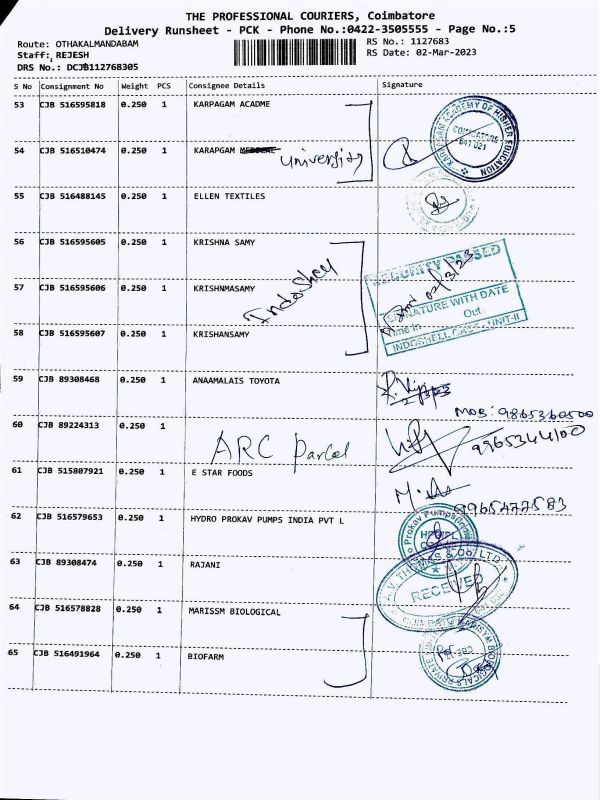 THE PROFESSIONAL COURIERS, Coimbatore
Delivery Runsheet - PCK - Phone No.:0422-3505555 - Page No.:5
Route: OTHAKALMANDABAM
RS No.: 1127683
Staff: REJESH
RS Date: 02-Mar-2023
DRS No.: DCJB112768305
S No Consignment No Weight PCS Consignee Details Signature
53 CJB 516595818 0.250 1 KARPAGAM ACADME
KARPAGAM ACADEMY OF HIGHER EDUCATION
COIMBATORE 641 021
54 CJB 516510474 0.250 1 KARAPGAM University
55 CJB 516488145 0.250 1 ELLEN TEXTILES
56 CJB 516595605 0.250 1 KRISHNA SAMY
SECURITY PASSED
57 CJB 516595606 0.250 1 KRISHNMASAMY
Indoshell
02/3/23
SIGNATURE WITH DATE
Time In Out
58 CJB 516595607 0.250 1 KRISHANSAMY
INDOSHELL CAST UNIT-II
59 CJB 89308468 0.250 1 ANAAMALAIS TOYOTA
MOB: 9865360500
60 CJB 89224313 0.250 1
ARC Parcel
9965344100
61 CJB 515807921 0.250 1 E STAR FOODS
9965477583
62 CJB 516579653 0.250 1 HYDRO PROKAV PUMPS INDIA PVT L
63 CJB 89308474 0.250 1 RAJANI
RECEIVED
64 CJB 516578828 0.250 1 MARISSM BIOLOGICAL
65 CJB 516491964 0.250 1 BIOFARM